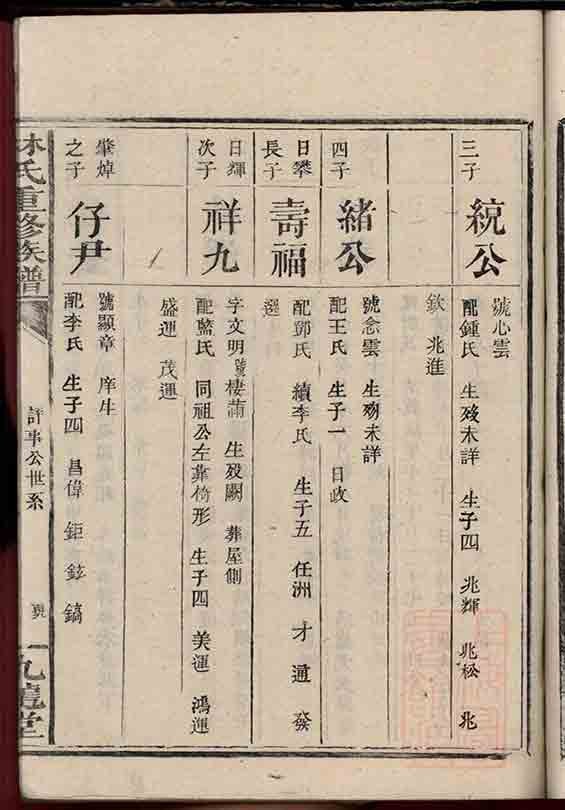 三子
統公
號心雲
配鍾氏 生殁未詳 生子四 兆輝 兆松 兆
欽 兆進
四子
緒公
號念雲 生殁未詳
配王氏 生子一 日政
日攀
長子
壽福
配鄧氏 續李氏 生子五 任洲 才 通 發
選
日輝
次子
祥九
字文明號棲蒲 生殁闕 葬屋側
配藍氏 同祖公左靠椅形 生子四 美運 鴻運
盛運 茂運
肇焯
之子
仔尹
號顯章 庠生
配李氏 生子四 昌偉 鉅 鉉 鎬
林氏重修族譜
評事公世系
九龍堂